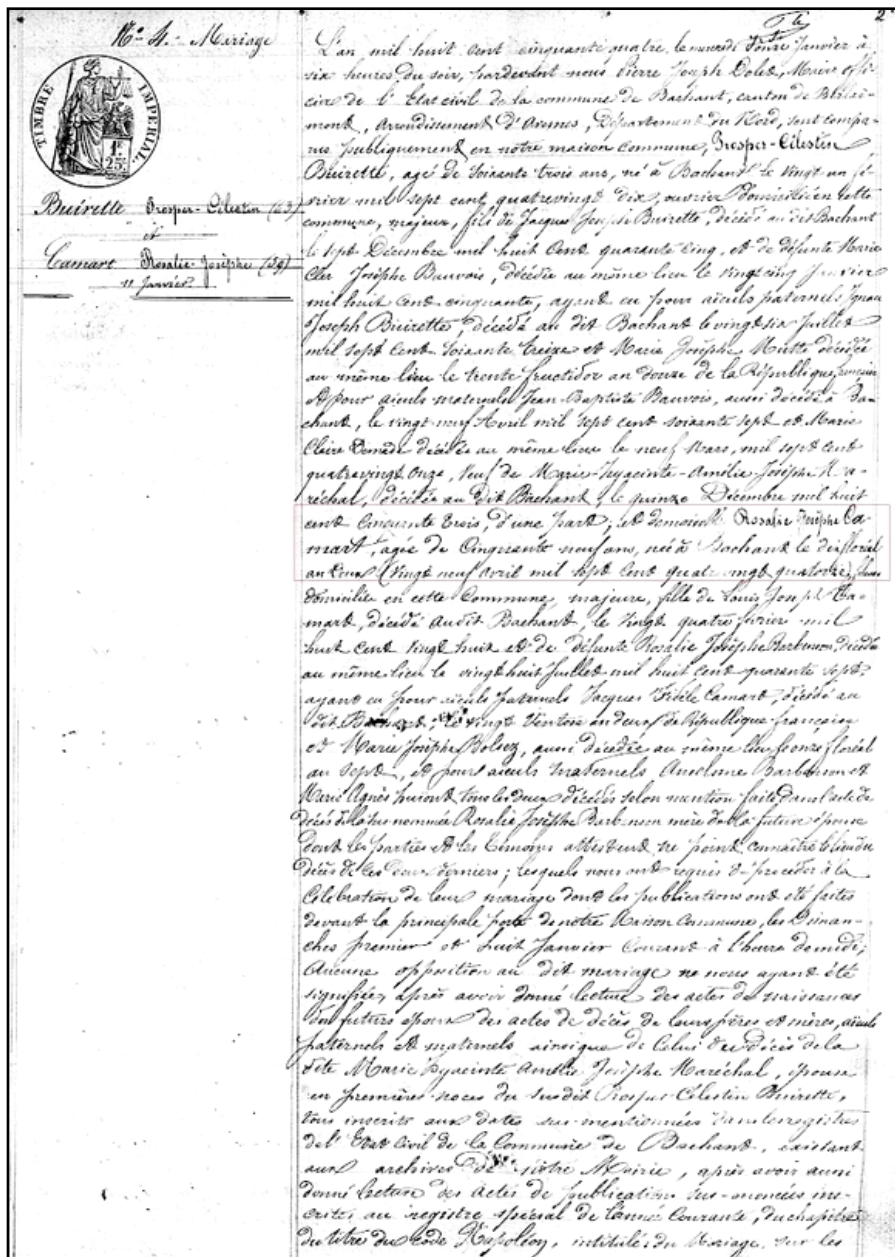 2
N° 4. Mariage
TIMBRE IMPERIAL
1F
25c
Buirette Prosper-Célestin (63)
et
Camart Rosalie-Josèphe (59)
11 Janvier
L'an mil huit cent cinquante quatre, le mercredi onze Janvier à
six heures du soir, pardevant nous Pierre Joseph Dolez, Maire offi-
cier de l'Etat civil de la commune de Bachant, canton de Berlai-
mont, arrondissement d'Avesnes, Département du Nord, sont compa-
rus publiquement en notre maison commune, Prosper-Célestin
Buirette, agé de soixante trois ans, né à Bachant le vingt un fé-
vrier mil sept cent quatrevingt dix, ouvrier domicilié en cette
commune, majeur, fils de Jacques Joseph Buirette, décédé au dit Bachant
le sept Décembre mil huit cent quarante cinq, et de défunte Marie
Josèphe Bauvois, décédée au même lieu le vingt cinq Janvier
mil huit cent cinquante, ayant eu pour aïeuls paternels
Joseph Buirette, décédé au dit Bachant le vingt six Juillet
mil sept cent soixante treize et Marie Josèphe décédée
au même lieu le trente fructidor an douze de la République française
et pour aïeuls maternels Jean-Baptiste Bauvois, aussi décédé à Ba-
chant, le vingt neuf Avril mil sept cent soixante sept et Marie
Claire décédée au même lieu le neuf Mars, mil sept cent
quatrevingt onze, veuf de Marie-Hyacinte-Amélie Josèphe Ma-
réchal, décédée au dit Bachant, le quinze Décembre mil huit
cent cinquante trois, d'une part; et demoiselle Rosalie Josèphe Ca-
mart, agée de cinquante neuf ans, née à Bachant le dix floréal
an deux (vingt neuf avril mil sept cent quatrevingt quatorze),
domicilié en cette commune, majeure, fille de Louis Joseph Ca-
mart, décédé audit Bachant, le vingt quatre février mil
huit cent vingt huit et de défunte Rosalie Josèphe Barbenson, décédée
au même lieu le vingt huit Juillet mil huit cent quarante sept,
ayant eu pour aïeuls paternels Jacques Fidèle Camart, décédé au
dit Bachant, le vingt Ventose an deux de République française
et Marie Josèphe Bolsez, aussi décédée au même lieu le onze floréal
an sept, et pour aïeuls maternels Anselme Barbenson et
Marie Agnès tous les deux décédés selon mention faite dans l'acte de
décès de la sus nommée Rosalie Josèphe Barbenson mère de la future épouse
dont les parties et les témoins attestent ne point connaître le lieu du
décès de ces deux derniers; lesquels nous ont requis de procéder à la
célébration de leur mariage dont les publications ont été faites
devant la principale porte de notre Maison Commune, les Diman-
ches premier et huit Janvier courant à l'heure de midi;
Aucune opposition au dit mariage ne nous ayant été
signifiée, après avoir donné lecture des actes de naissances
des futurs époux des actes de décès de leurs pères et mères, aïeuls
paternels et maternels ainsi que de celui du décès de la
dite Marie Hyacinte Amélie Josèphe Maréchal, épouse
en premières noces du susdit Prosper Célestin Buirette,
tous inscrits aux dates sus-mentionnées dans les registres
de l'Etat Civil de la Commune de Bachant, existant
aux archives de notre Mairie, après avoir aussi
donné lecture des actes de publication sus-énoncées ins-
crites au registre spécial de l'année courante, du chapitre
du titre du code Napoléon, intitulé du Mariage, sur les